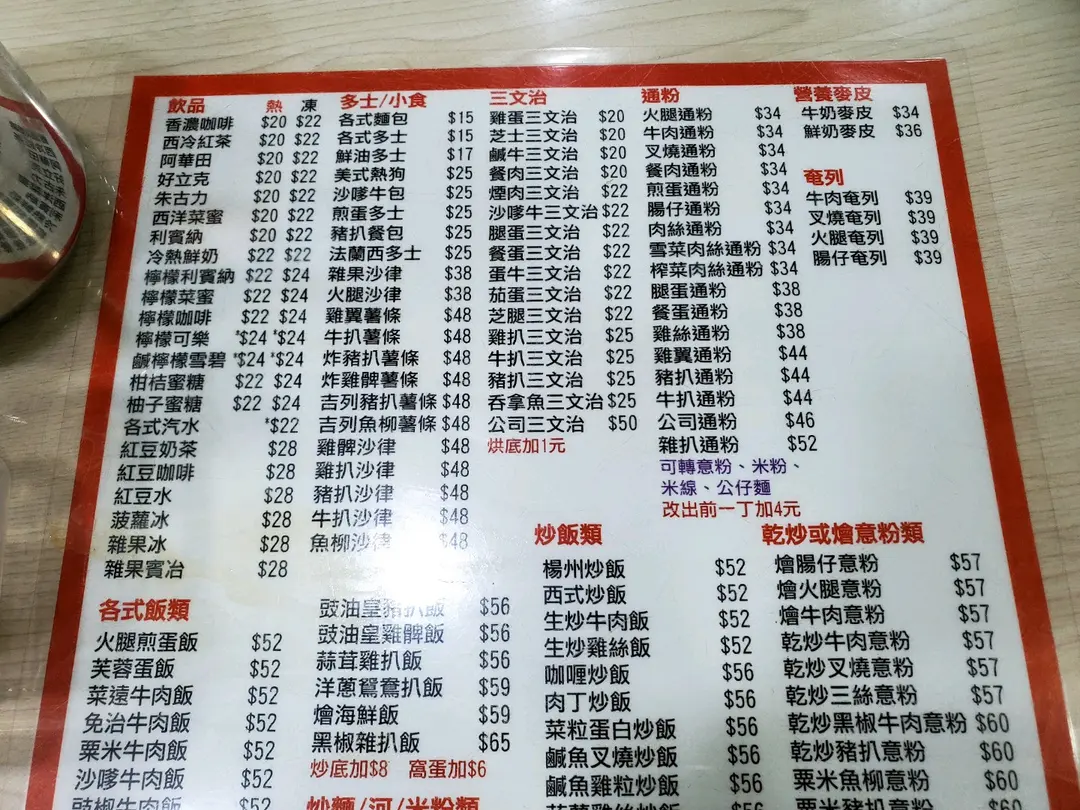 飲品 熱 凍
香濃咖啡 $20 $22
西冷紅茶 $20 $22
阿華田 $20 $22
好立克 $20 $22
朱古力 $20 $22
西洋菜蜜 $20 $22
利賓納 $20 $22
冷熱鮮奶 $22 $22
檸檬利賓納 $22 $24
檸檬菜蜜 $22 $24
檸檬咖啡 $22 $24
檸檬可樂 *$24 *$24
鹹檸檬雪碧 *$24 *$24
柑桔蜜糖 $22 $24
柚子蜜糖 $22 $24
各式汽水 *$22
紅豆奶茶 $28
紅豆咖啡 $28
紅豆水 $28
菠蘿冰 $28
雜果冰 $28
雜果賓治 $28
多士/小食
各式麵包 $15
各式多士 $15
鮮油多士 $17
美式熱狗 $25
沙嗲牛包 $25
煎蛋多士 $25
豬扒餐包 $25
法蘭西多士 $25
雜果沙律 $38
火腿沙律 $38
雞翼薯條 $48
牛扒薯條 $48
炸豬扒薯條 $48
炸雞髀薯條 $48
吉列豬扒薯條 $48
吉列魚柳薯條 $48
雞髀沙律 $48
雞扒沙律 $48
豬扒沙律 $48
牛扒沙律 $48
魚柳沙律 $48
三文治
雞蛋三文治 $20
芝士三文治 $20
鹹牛三文治 $20
餐肉三文治 $20
煙肉三文治 $22
沙嗲牛三文治 $22
腿蛋三文治 $22
餐蛋三文治 $22
蛋牛三文治 $22
茄蛋三文治 $22
芝腿三文治 $22
雞扒三文治 $25
牛扒三文治 $25
豬扒三文治 $25
吞拿魚三文治 $25
公司三文治 $50
烘底加1元
通粉
火腿通粉 $34
牛肉通粉 $34
叉燒通粉 $34
餐肉通粉 $34
煎蛋通粉 $34
腸仔通粉 $34
肉絲通粉 $34
雪菜肉絲通粉 $34
榨菜肉絲通粉 $34
腿蛋通粉 $38
餐蛋通粉 $38
雞絲通粉 $38
雞翼通粉 $44
豬扒通粉 $44
牛扒通粉 $44
公司通粉 $46
雜扒通粉 $52
可轉意粉、米粉、
米線、公仔麵
改出前一丁加4元
營養麥皮
牛奶麥皮 $34
鮮奶麥皮 $36
奄列
牛肉奄列 $39
叉燒奄列 $39
火腿奄列 $39
腸仔奄列 $39
各式飯類
火腿煎蛋飯 $52
芙蓉蛋飯 $52
菜遠牛肉飯 $52
免治牛肉飯 $52
粟米牛肉飯 $52
沙嗲牛肉飯 $52
豉椒牛肉飯 $52
豉油皇豬扒飯 $56
豉油皇雞髀飯 $56
蒜茸雞扒飯 $56
洋蔥鴛鴦扒飯 $59
燴海鮮飯 $59
黑椒雜扒飯 $65
炒底加$8 窩蛋加$6
炒麵/河/米粉類
炒飯類
楊州炒飯 $52
西式炒飯 $52
生炒牛肉飯 $52
生炒雞絲飯 $52
咖喱炒飯 $56
肉丁炒飯 $56
菜粒蛋白炒飯 $56
鹹魚叉燒炒飯 $56
鹹魚雞粒炒飯 $56
$56
乾炒或燴意粉類
燴腸仔意粉 $57
燴火腿意粉 $57
燴牛肉意粉 $57
乾炒牛肉意粉 $57
乾炒叉燒意粉 $57
乾炒三絲意粉 $57
乾炒黑椒牛肉意粉 $60
乾炒豬扒意粉 $60
粟米魚柳意粉 $60
粟米豬扒意粉 $60